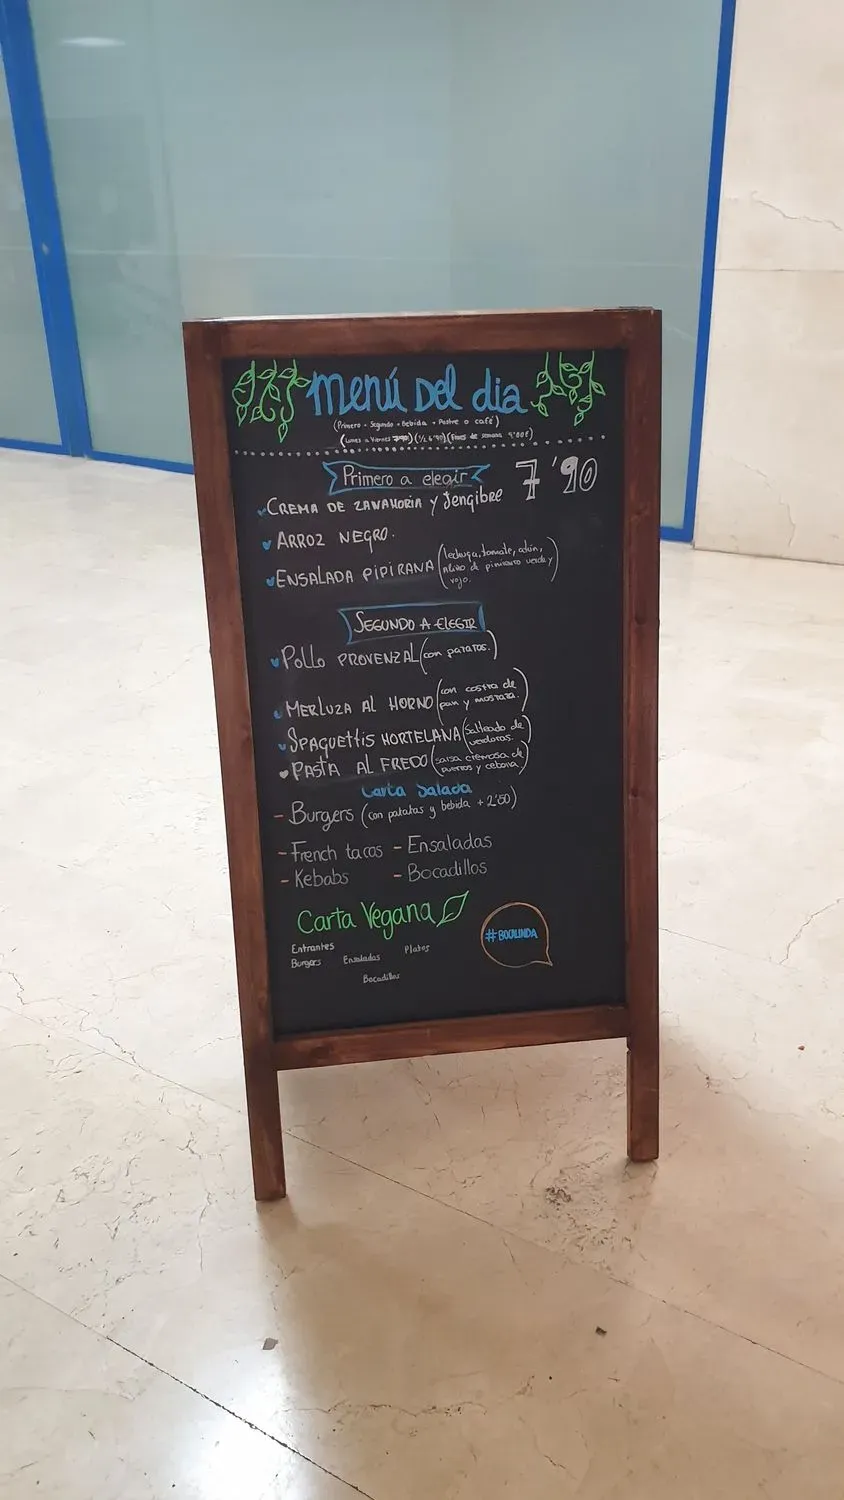 Menú Del dia
(Primero + Segundo + Bebida + Postre o café)
(Lunes a Viernes 7'90) (1/2 6'90) (Fines de semana 9'00€)
Primero a elegir 7'90
CREMA DE ZANAHORIA y Jengibre
ARROZ NEGRO.
ENSALADA PIPIRANA (lechuga, tomate, atún,
aliño de pimiento verde y
rojo.
SEGUNDO A ELEGIR
Pollo PROVENZAL (con patatas.)
MERLUZA AL HORNO (con costra de
pan y mostaza.)
SPAGUETTIS HORTELANA (Salteado de
verduras.)
PASTA AL FREDO (salsa cremosa de
puerros y cebolla)
Carta Salada
- Burgers (con patatas y bebida + 2'50)
- French tacos - Ensaladas
- Kebabs - Bocadillos
Carta Vegana
Entrantes
Burgers Ensaladas Platos
Bocadillos